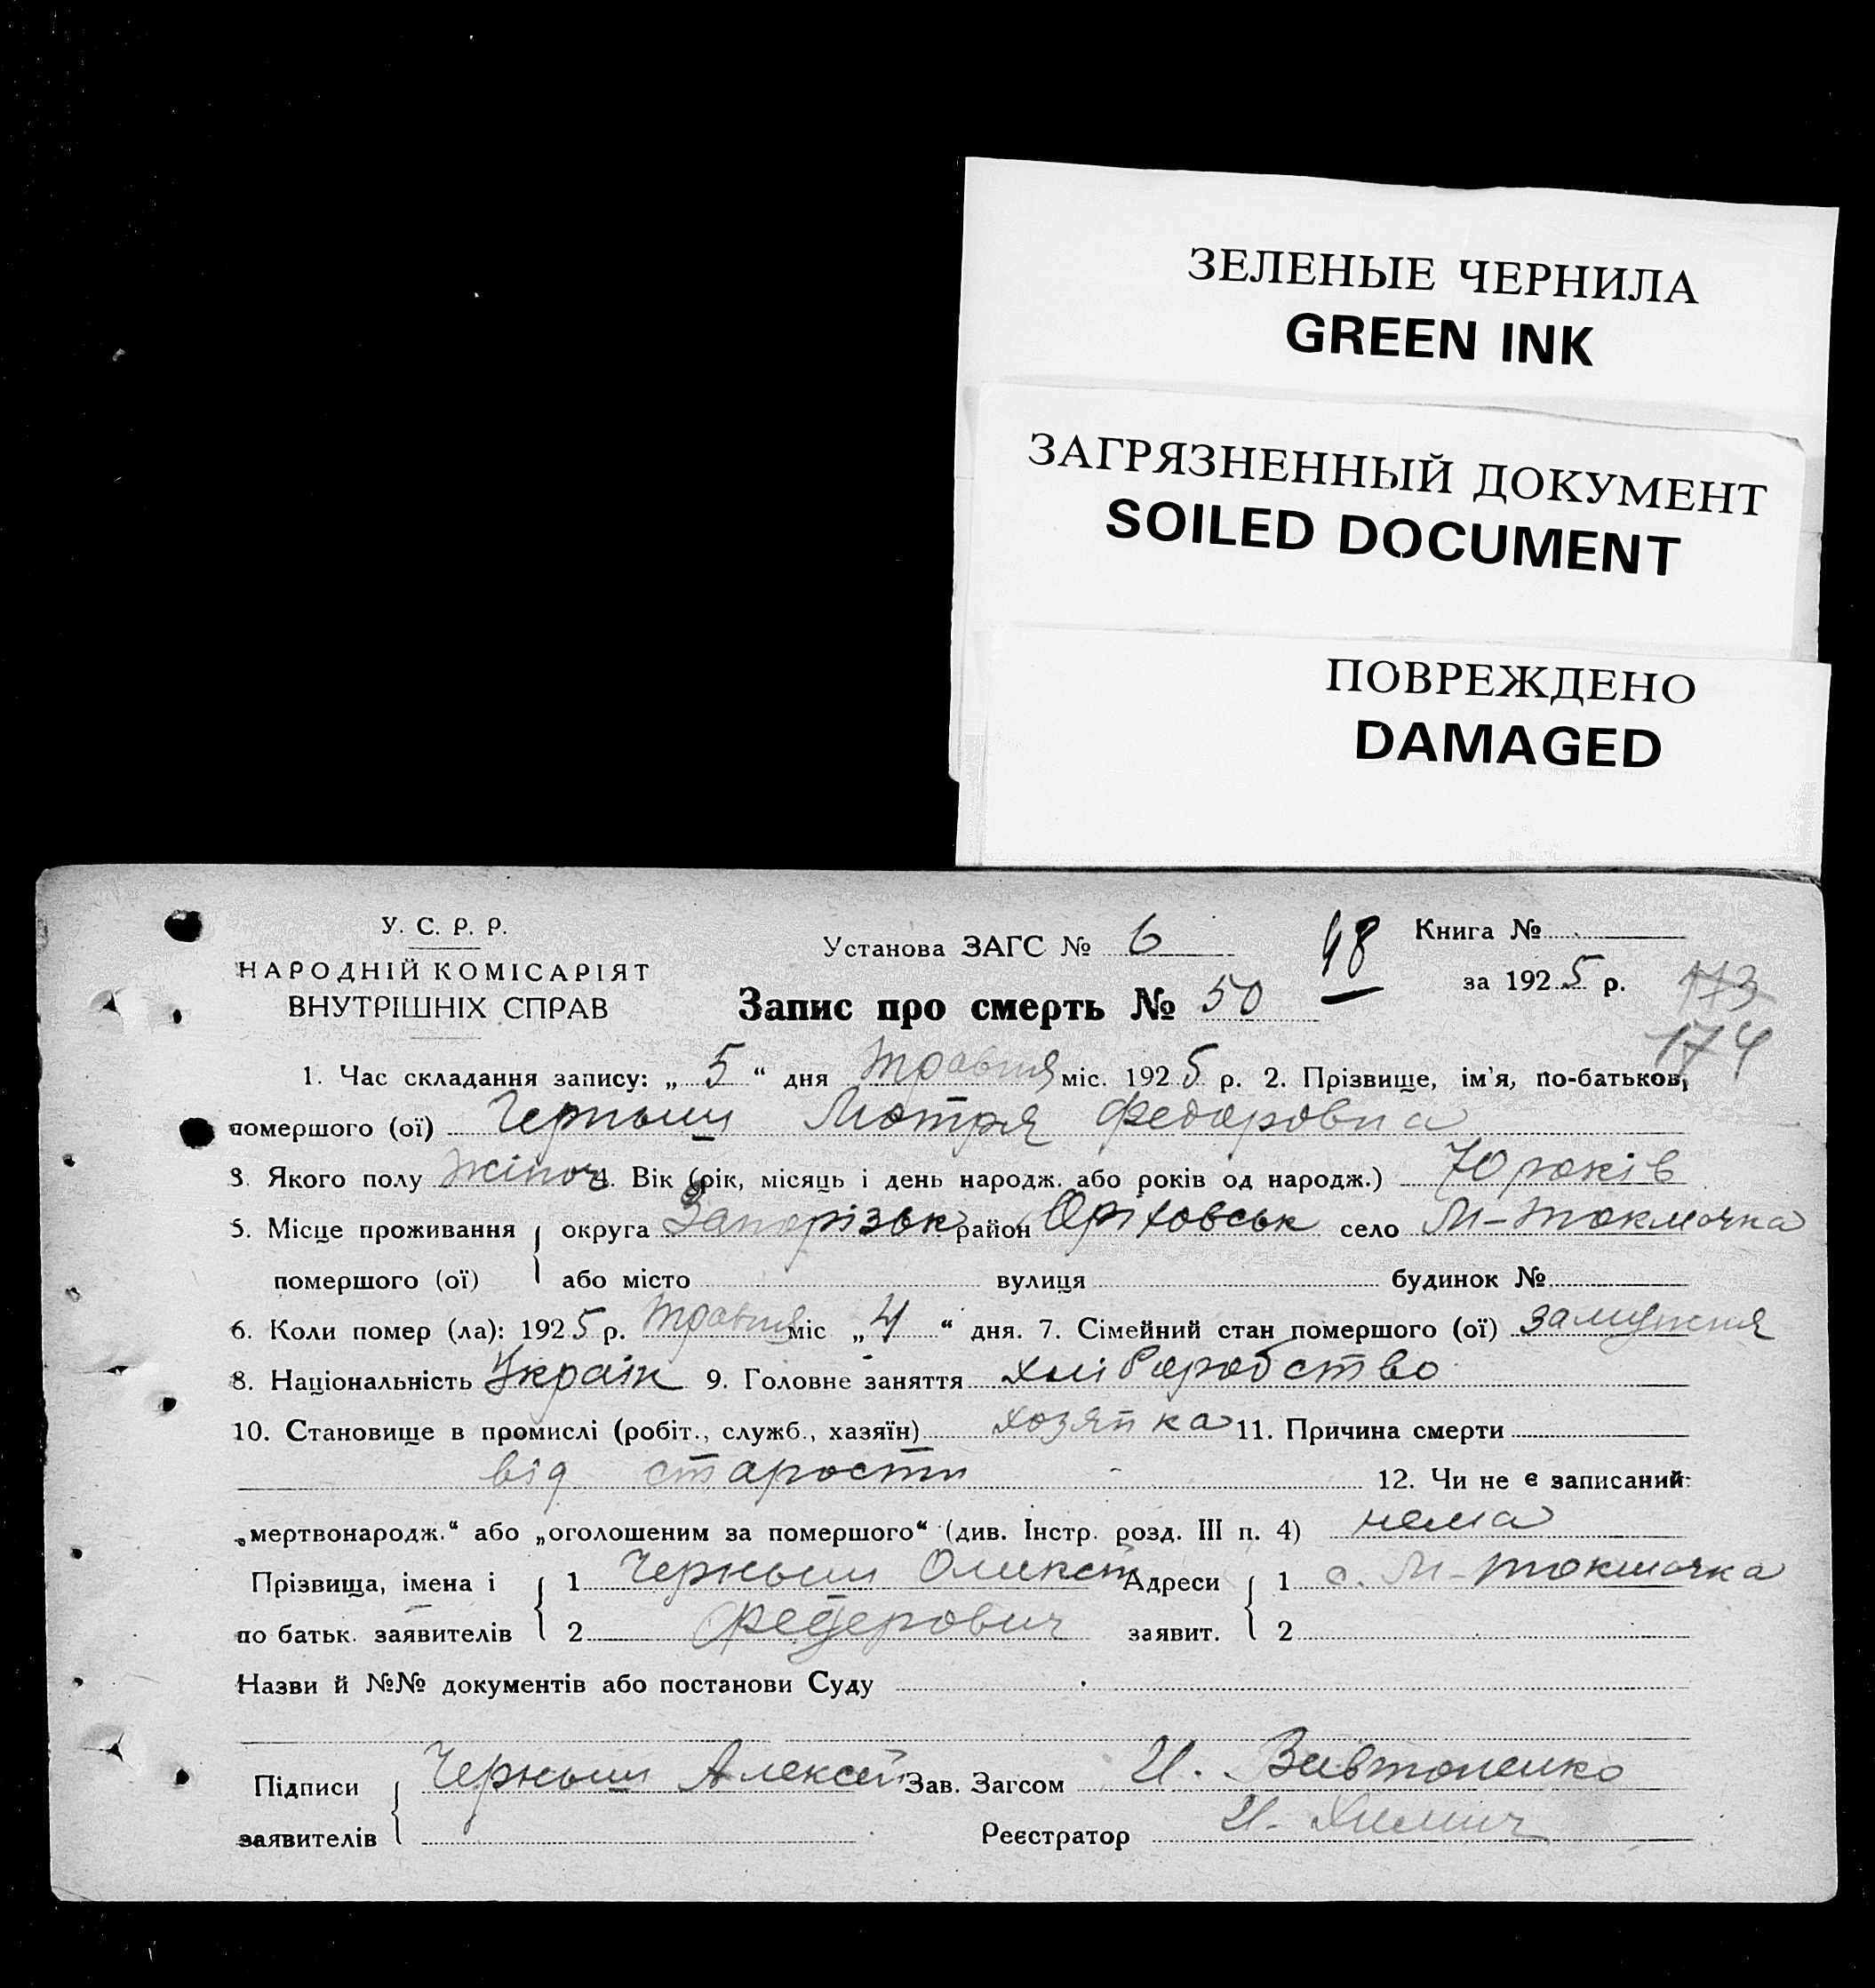 ЗЕЛЕНЫЕ ЧЕРНИЛА
GREEN INK
ЗАГРЯЗНЕННЫЙ ДОКУМЕНТ
SOILED DOCUMENT
ПОВРЕЖДЕНО
DAMAGED
У. С. Р. Р.
НАРОДНІЙ КОМІСАРІЯТ
ВНУТРІШНІХ СПРАВ
Установа ЗАГС № 6
98
Книга №
за 1925 р.
Запис про смерть № 50
173
174
1. Час складання запису: „ 5 “ дня травня міс. 1925 р. 2. Прізвище, ім'я, по-батькові
помершого (ої) Черныш Мотря Федоровна
3. Якого полу жіноч 4. Вік (рік, місяць і день народж. або років од народж.) 70 років
5. Місце проживання округа Запорізьк район Оріховськ село М-Токмачка
помершого (ої) або місто вулиця будинок №
6. Коли помер (ла): 1925 р. травня міс „ 4 “ дня. 7. Сімейний стан помершого (ої) замужня
8. Національність Україн 9. Головне заняття хліборобство
10. Становище в промислі (робіт., служб., хазяїн) хозяйка 11. Причина смерти
від старости 12. Чи не є записаний:
„мертвонародж.“ або „оголошеним за помершого“ (див. Інстр. розд. III п. 4) нема
Прізвища, імена і 1 Черныш Олексій Адреси 1 с. М-Токмачка
по батьк. заявителів 2 Федерович заявит. 2
Назви й №№ документів або постанови Суду
Підписи Черныш Алексей Зав. Загсом И.
заявителів Реєстратор И.